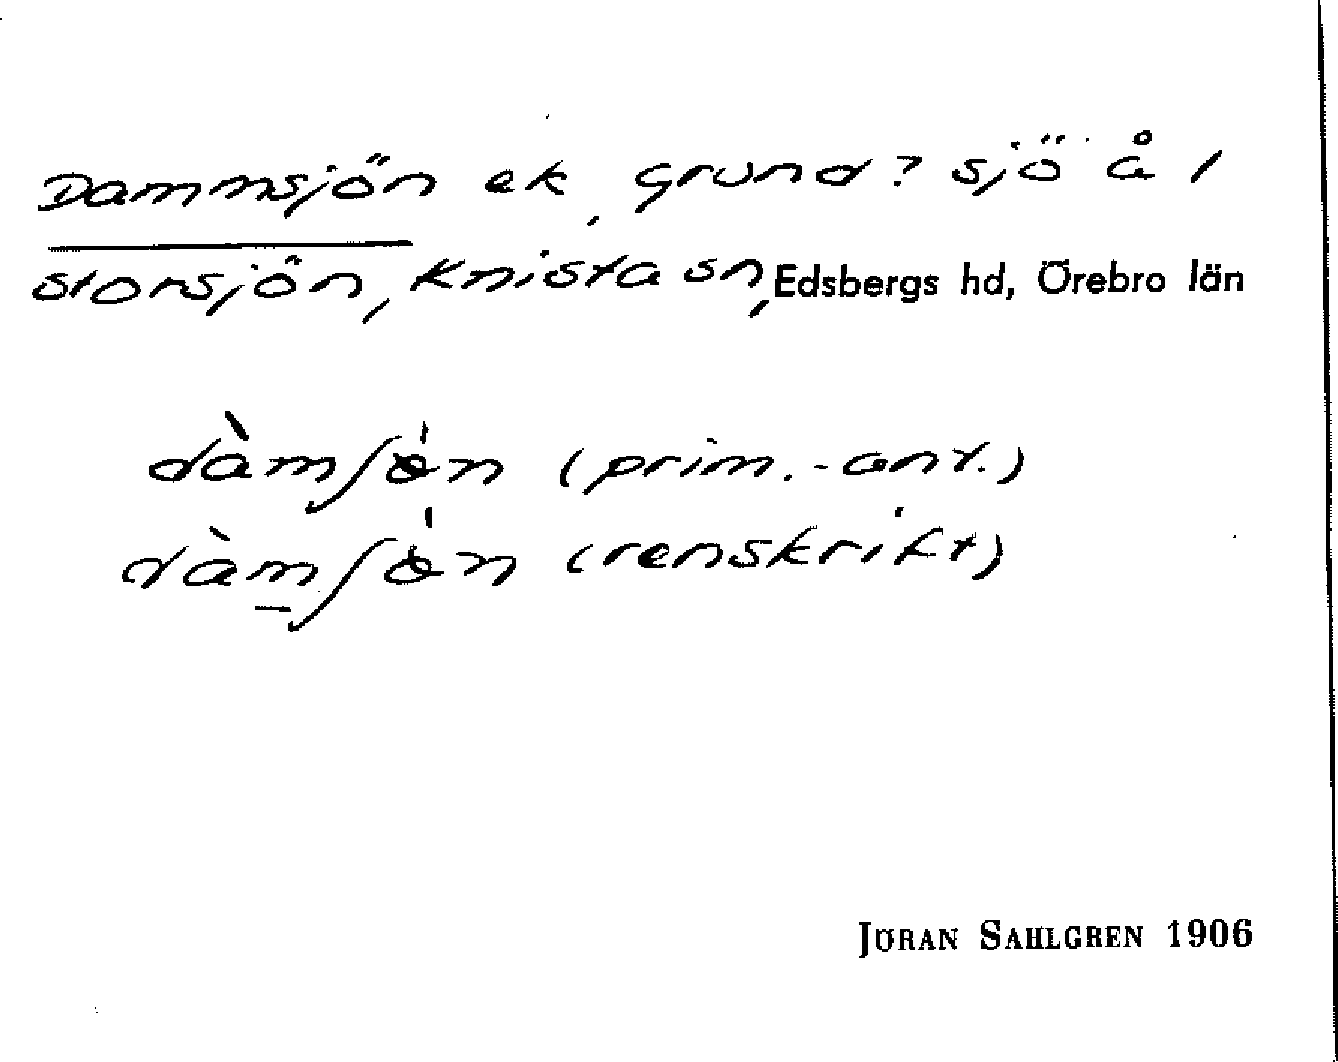 Dammsjön ek, grund? sjö å l
storsjön, Knista sn, Edsbergs hd, Örebro län
dàmʃǿn (prim.-ant.)
dàm̲ʃǿn (renskrift)
JÖRAN SAHLGREN 1906